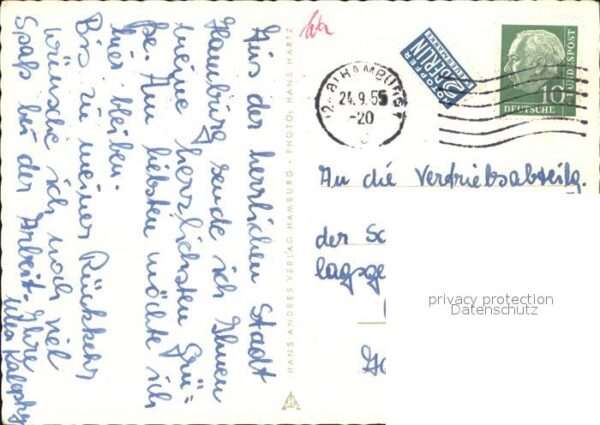 Aus der herrlichen Stadt
Hamburg sende ich Ihnen
meine herzlichsten Grü-
ße. Am liebsten möchte ich
hier bleiben.
Bis zu meiner Rückkehr
wünsche ich noch viel
Spaß bei der Arbeit. Ihre
HANS ANDRES VERLAG HAMBURG · PHOTO: HANS HARTZ
HAMBURG 1
24.9.55
-20
NOTOPFER
2 BERLIN
STEUERMARKE
10
DEUTSCHE
BUNDESPOST
An die Vertriebsabteilg.
der Sc
lagsge
privacy protection
Datenschutz